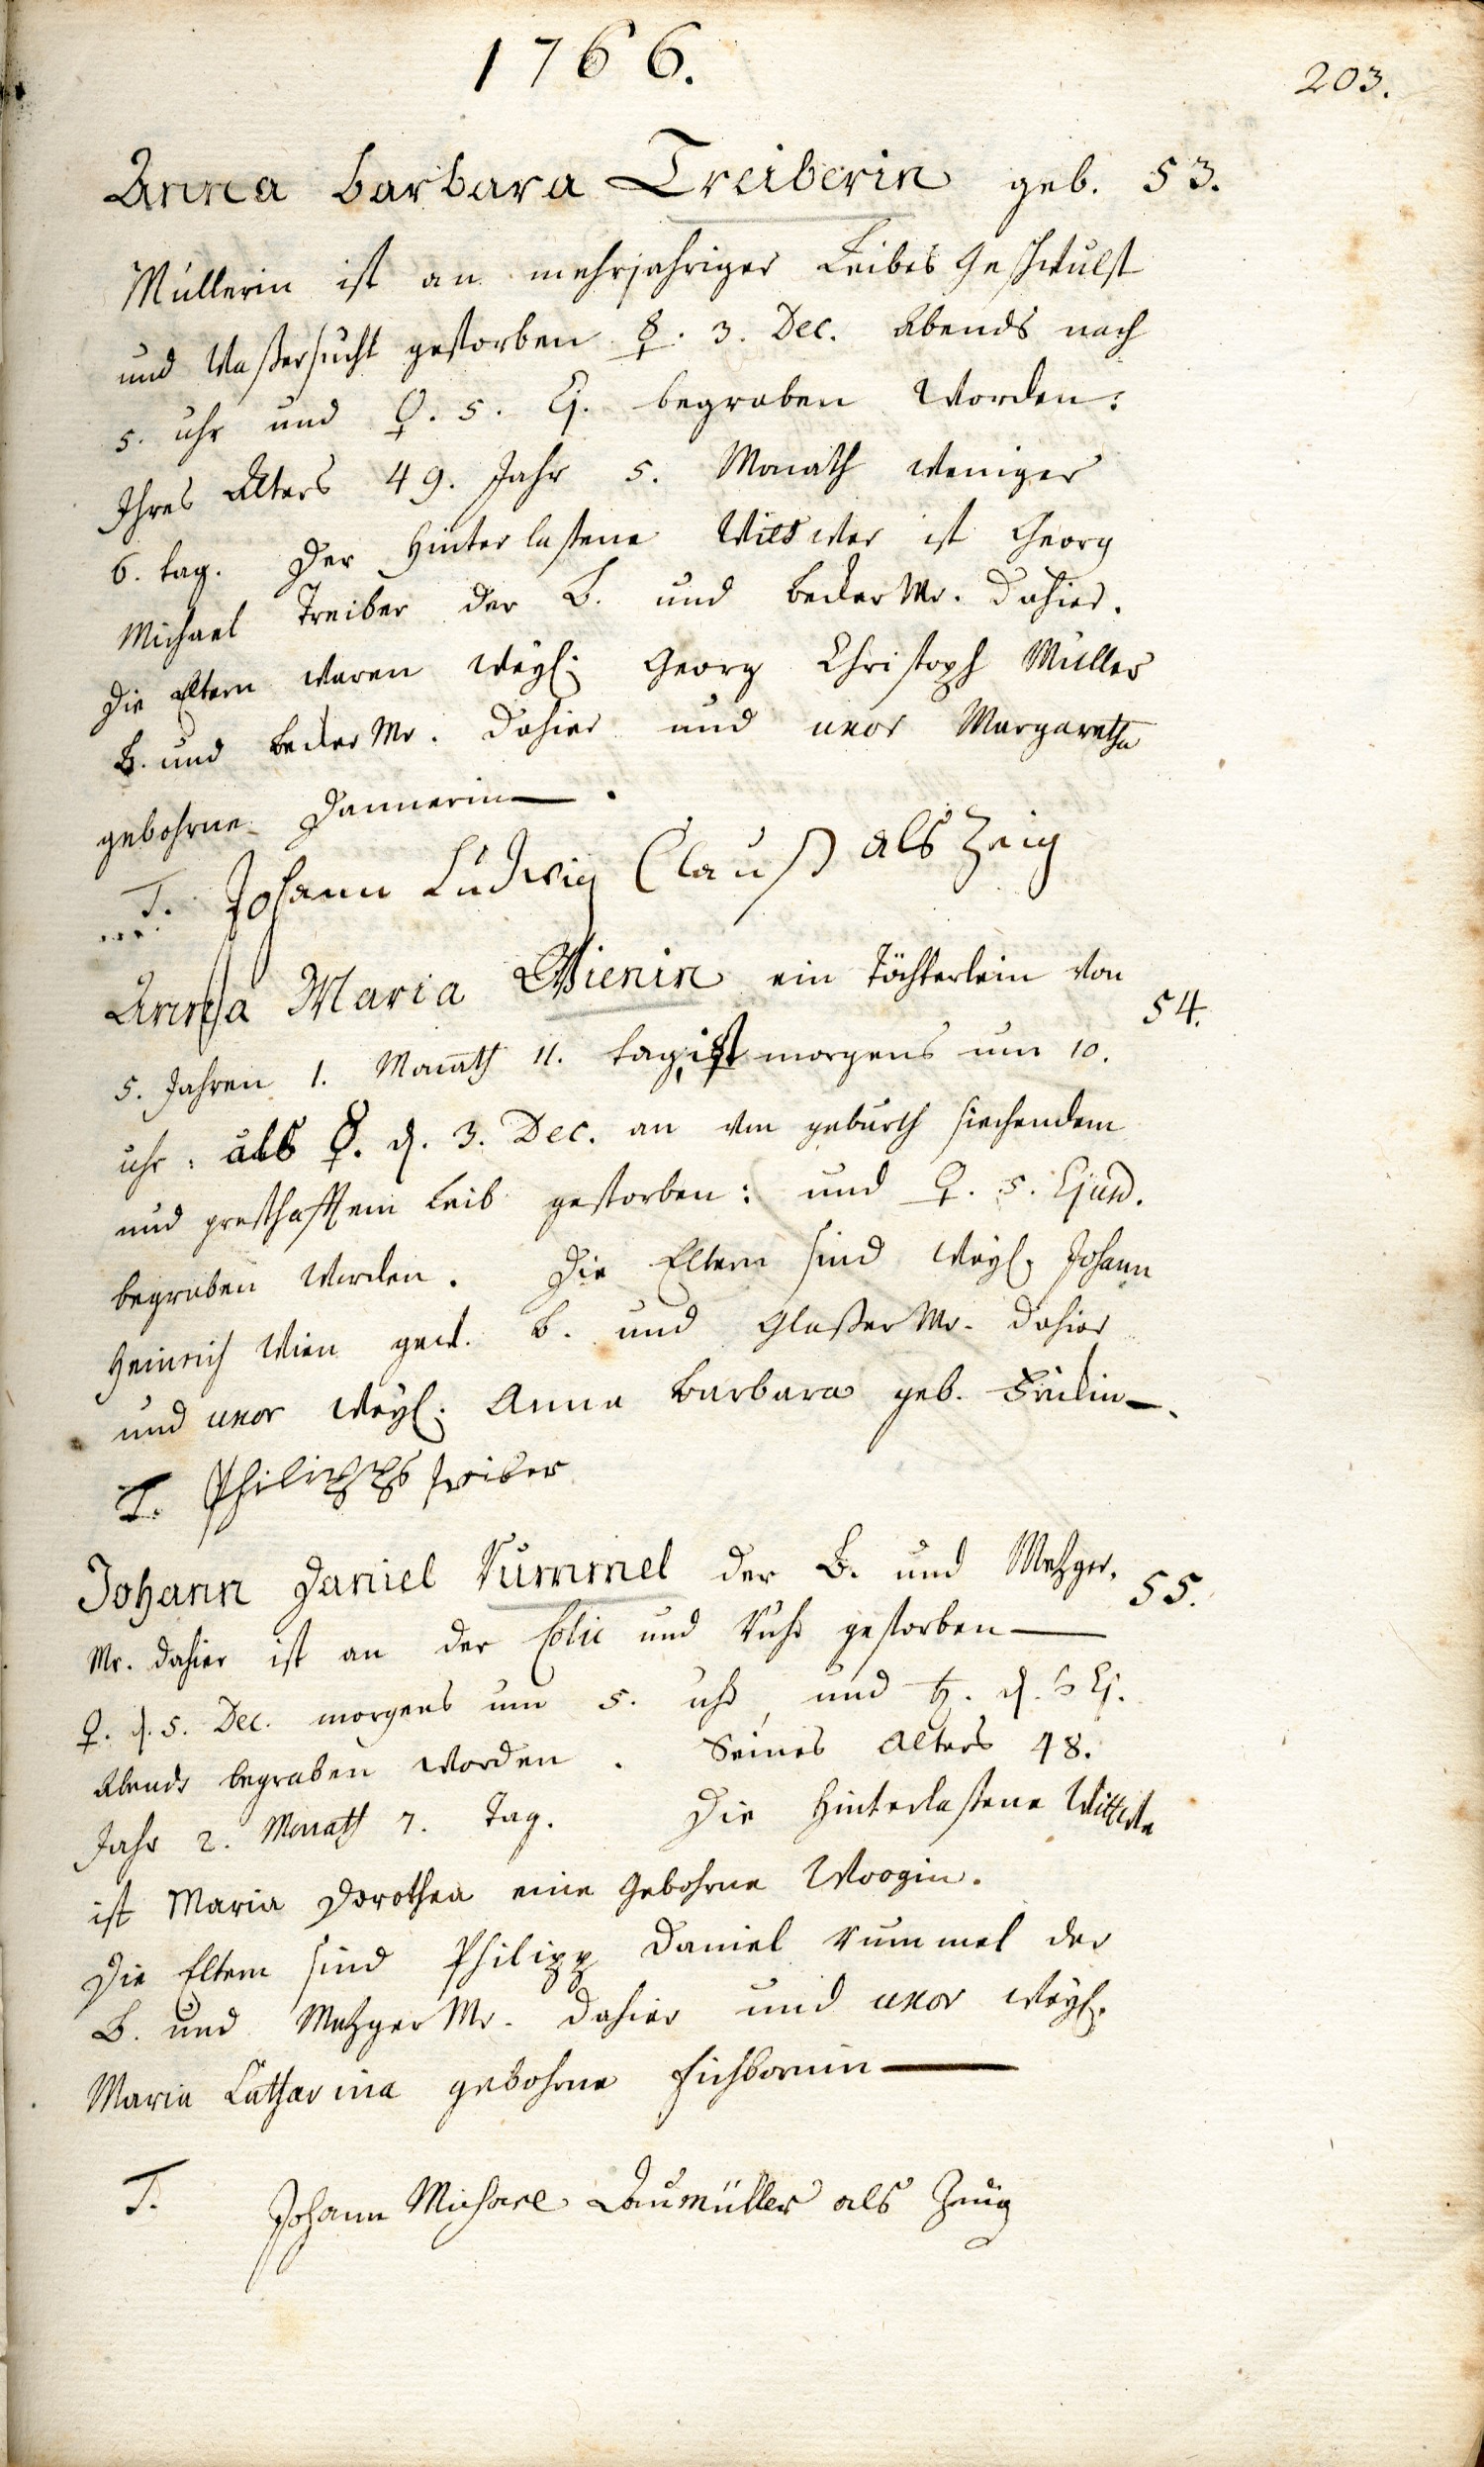 1766.
203.
Anna Barbara Treiberin geb. 53.
Müllerin ist an mehrjahriger Leibes Geschwulst
und Waßersucht gestorben ☿. 3. Dec. Abends nach
5. uhr und ♀. 5. Ej. begraben worden:
Ihres Alters 49. Jahr 5. Monath weniger
6. tag. Der Hinterlaßene Wittwer ist Georg
Michael Treiber der B. und Becker Mr. dahier.
Die Eltern waren weyl. Georg Christoph Müller
B. und Becker Mr. dahier und uxor Margaretha
gebohrne Dannerin.
T. Johann Ludwig Clauß als Zeig
Anna Maria Wienin ein Töchterlein von 54.
5. Jahren 1. Monath 11. tag, ist morgens um 10.
uhr: als ☿. d. 3. Dec. an von geburth siechendem
und presthafftem Leib gestorben: und ♀. 5. Ejusd.
begraben worden. Die Eltern sind weyl. Johann
Heinrich Wien gew. B. und Glaßer Mr. dahier
und uxor weyl. Anna Barbara geb.
T. Philipps Treiber
Johann Daniel Rummel der B. und Metzger. 55.
Mr. dahier ist an der Colic und Ruhr gestorben
♀. d. 5. Dec. morgens um 5. uhr, und ♄. d. 6 Ej.
Abends begraben worden. Seines Alters 48.
Jahr 2. Monath 7. Tag. Die Hinterlaßene Wittwe
ist Maria Dorothea eine Gebohrne Woogin.
Die Eltern sind Philipp Daniel Rummel der
B. und Metzger Mr. dahier und uxor weyl.
Maria Catharina gebohrne Eichbornin
T. Johann Michael Daumüller als Zeug